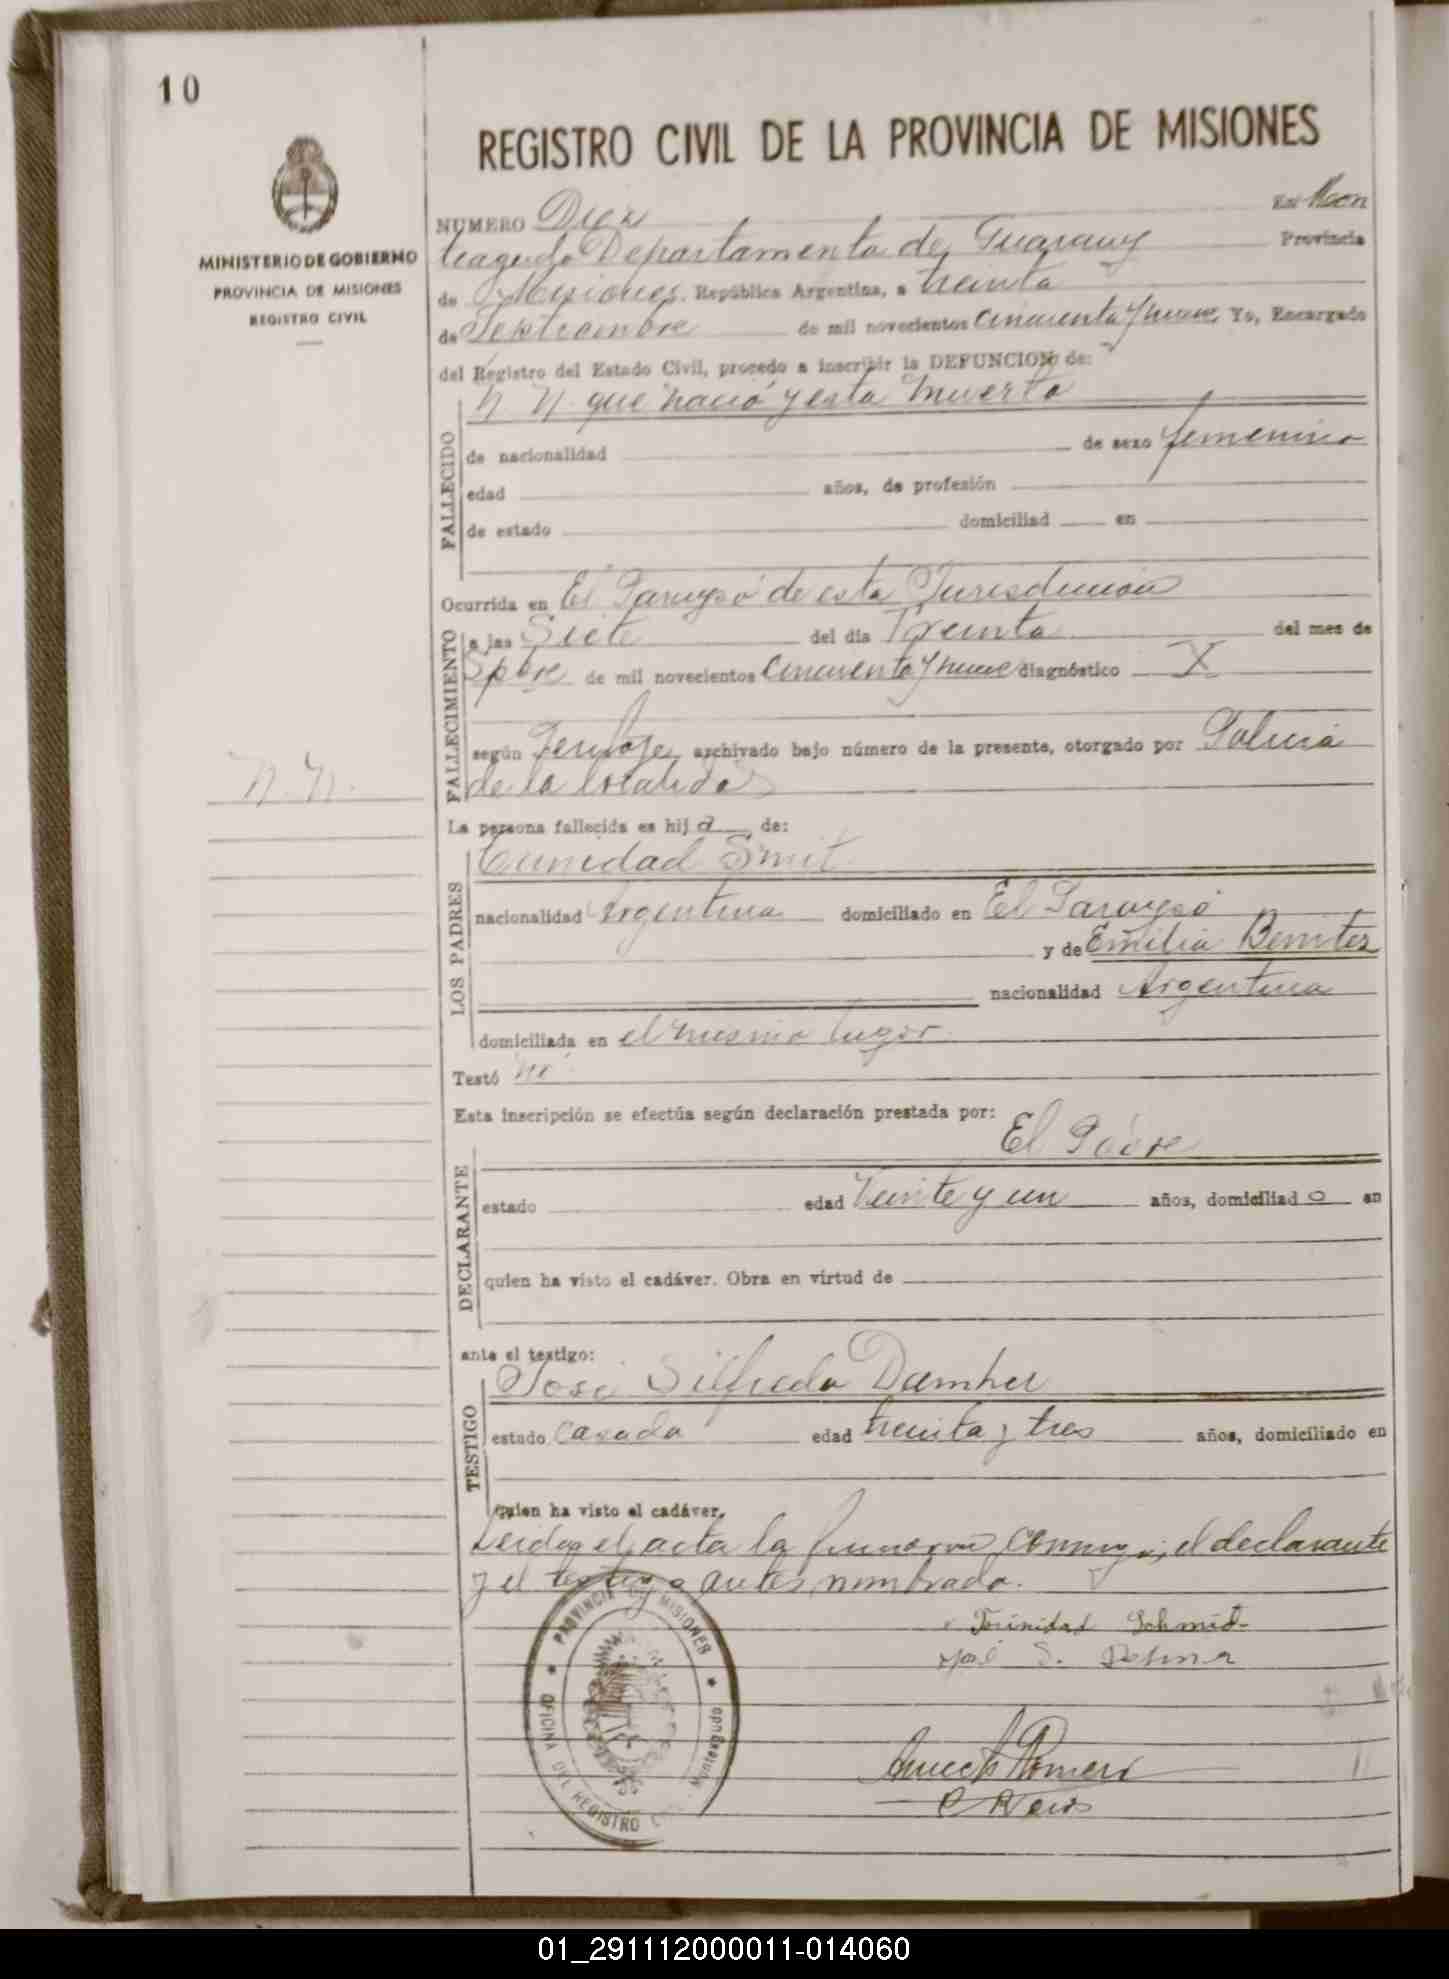 10
MINISTERIO DE GOBIERNO
PROVINCIA DE MISIONES
REGISTRO CIVIL
REGISTRO CIVIL DE LA PROVINCIA DE MISIONES
NUMERO Diez En: Mon
teagudo Departamento de Guarany Provincia
de Misiones. República Argentina, a treinta
de Septiembre de mil novecientos cincuenta y nueve, Yo, Encargado
del Registro del Estado Civil, procedo a inscribir la DEFUNCION de:
FALLECIDO
N. N. que nació y esta muerta
de nacionalidad de sexo femenino
edad años, de profesión
de estado domiciliad en
Ocurrida en El Parayso de esta Jurisdicción
FALLECIMIENTO
a las Siete del día Treinta del mes de
Spbre de mil novecientos cincuenta y nueve diagnóstico X
según archivado bajo número de la presente, otorgado por Policia
de la localidad
N. N.
La persona fallecida es hija de:
LOS PADRES
Trinidad Smit
nacionalidad Argentina domiciliado en El Parayso
y de Emilia Benitez
nacionalidad Argentina
domiciliada en el mismo lugar.
Testó no
Esta inscripción se efectúa según declaración prestada por:
El Padre
DECLARANTE
estado edad Veinte y un años, domiciliado en
quien ha visto el cadáver. Obra en virtud de
ante el testigo:
TESTIGO
José Silfredo Damher
estado casado edad treinta y tres años, domiciliado en
quien ha visto el cadáver.
Leida el acta la firmaron conmigo, el declarante
y el testigo antes nombrado.
Trinidad Schmit
José S.
PROVINCIA DE MISIONES
OFICINA DEL REGISTRO Monteagudo
Romero
01_291112000011-014060